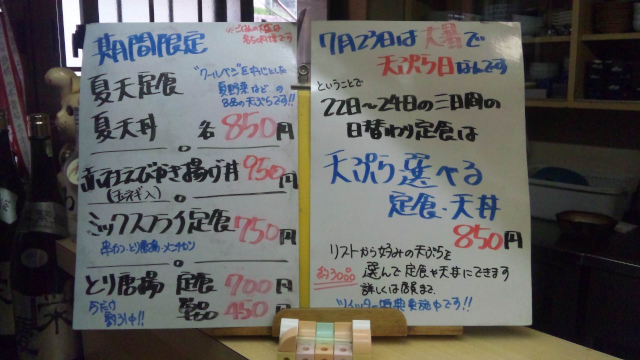 期間限定
夏天定食
"クールベジ"を中心とした
夏野菜などの
8品の天ぷらです!!
夏天丼 各850円
かき揚げ丼 950円
(玉ネギ入)
ミックスフライ定食 750円
串カツ・とり唐揚・メンチカツ
とり唐揚 定食 700円
単品 450円
7月23日は大暑で
天ぷら日なんです
ということで
22日~24日の三日間の
日替わり定食は
天ぷら選べる
定食・天丼
850円
リストから好みの天ぷらを
約30品
選んで定食や天丼にできます
詳しくは店員まで
ツイッター特典実施中です!!